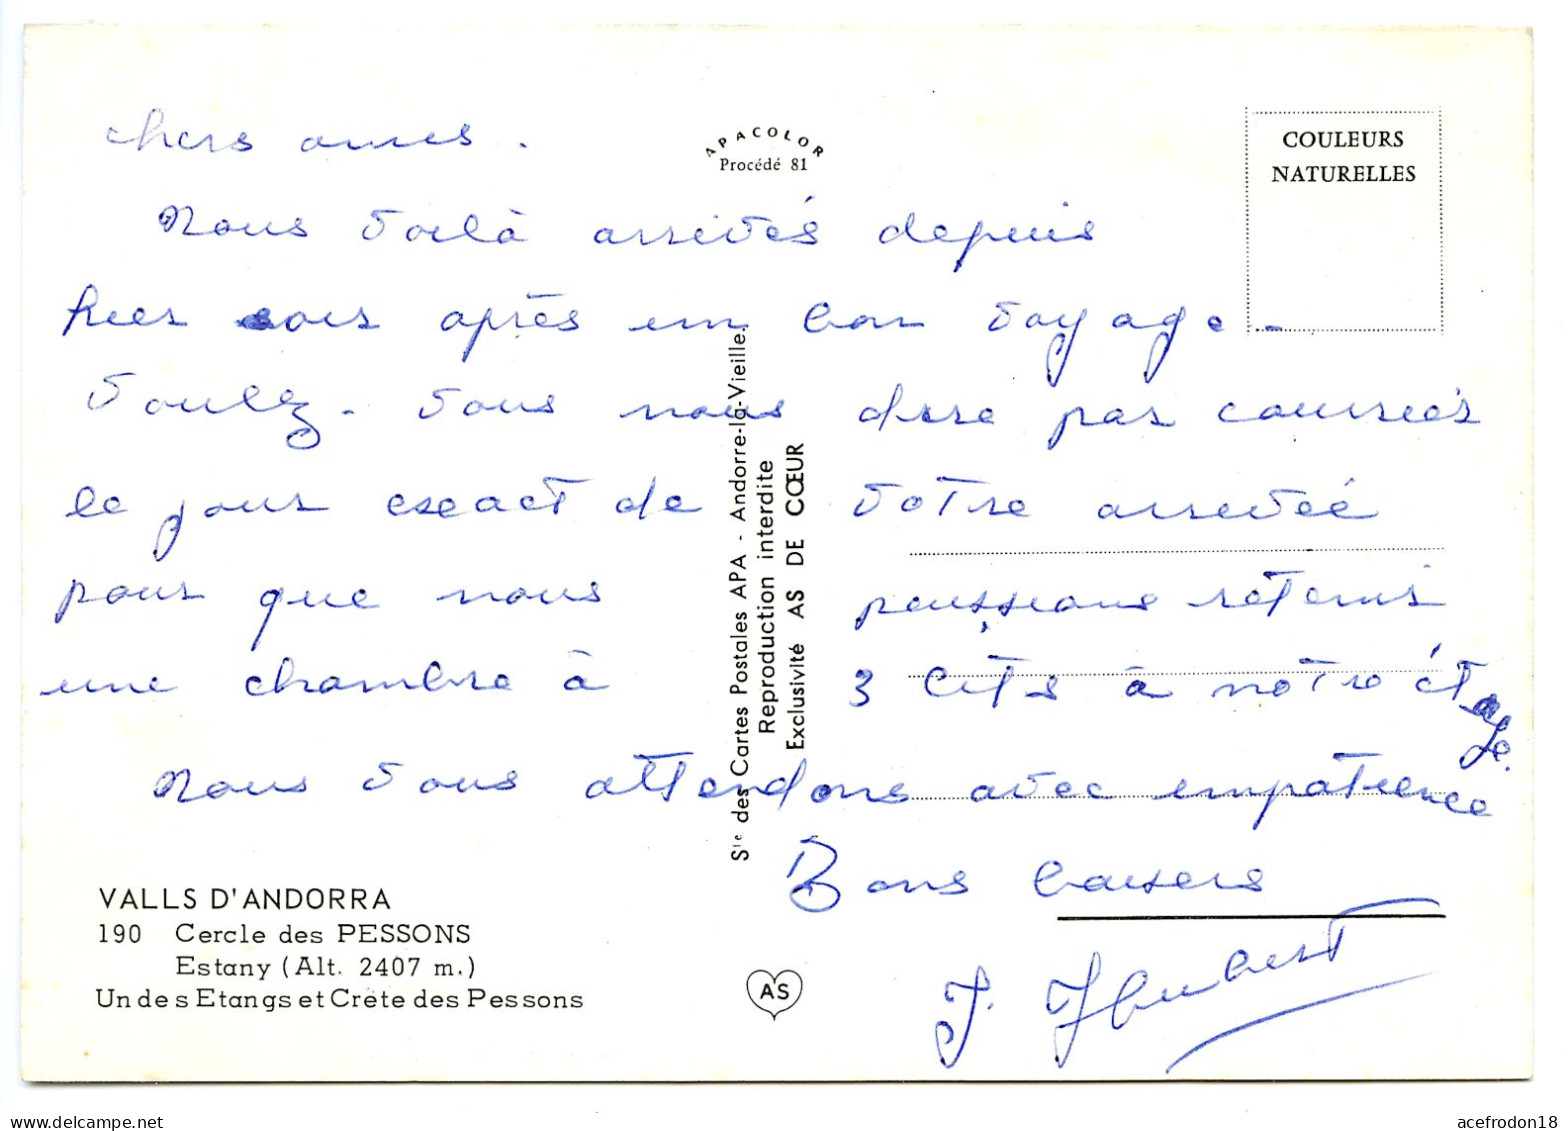 chers amis.
APACOLOR
Procédé 81
COULEURS
NATURELLES
Nous voilà arrivés depuis
hier soir après un bon voyage.
Voulez-vous nous dire par courrier
le jour exact de votre arrivée
pour que nous puissions retenir
une chambre à 3 lits à notre étage.
Nous vous attendons avec impatience
Bons baisers
J. Hubert
Sté des Cartes Postales APA - Andorre-la-Vieille.
Reproduction interdite
Exclusivité AS DE CŒUR
VALLS D'ANDORRA
190 Cercle des PESSONS
Estany (Alt. 2407 m.)
Un des Etangs et Crête des Pessons
AS
www.delcampe.net
acefrodon18